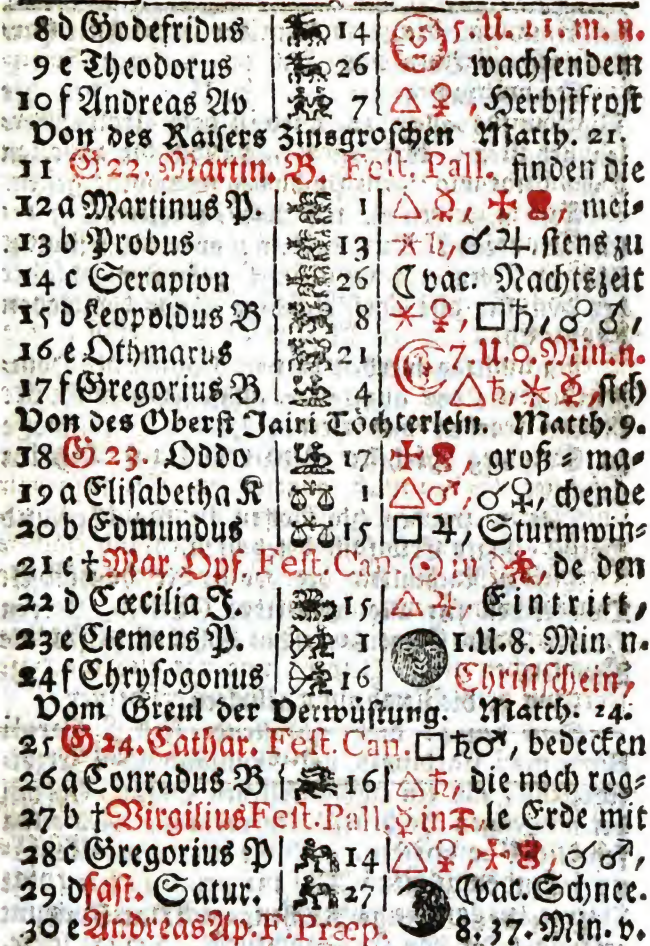 8 d Godefridus 14 5. U. 11. m. n.
9 e Theodorus 26 wachsendem
10 f Andreas Av 7 △ ♀, Herbstfrost
Von des Kaisers Zinsgroschen Matth. 21
11 G 22. Martin. B. Fest. Pall. finden die
12 a Martinus P. 1 △ ☿, mei⸗
13 b Probus 13 ⚹ ♄, ☌ ♃, stens zu
14 c Serapion 26 ☾ vac. Nachtszeit
15 d Leopoldus B 8 ⚹ ♀, □ ♄, ☍ ♂,
16 e Othmarus 21 ☾ 7. U. 0. Min. n.
17 f Gregorius B 4 △ ♄, ⚹ ☿, sich
Von des Oberst Jairi Töchterlein. Matth. 9.
18 G 23. Oddo 17 groß⸗ma⸗
19 a Elisabetha K 1 △ ♂, ☌ ♀, chende
20 b Edmundus 15 □ ♃, Sturmwin⸗
21 c † Mar Opf. Fest. Can. ☉ in ♐, de den
22 d Cœcilia J. 15 △ ♃, Eintritt,
23 e Clemens P. 1 1. U. 8. Min n.
24 f Chrysogonus 16 Christschein,
Vom Greul der Verwüstung. Matth. 24.
25 G 24. Cathar. Fest. Can. □ ♄ ♂, bedecken
26 a Conradus B 16 △ ♄, die noch rog⸗
27 b † Virgilius Fest. Pall. ☿ in le Erde mit
28 c Gregorius P 14 △ ♀, ☌ ♂,
29 d fast. Satur. 27 ☾ vac. Schnee.
30 e Andreas Ap. F. Præp. 8. 37. Min. v.